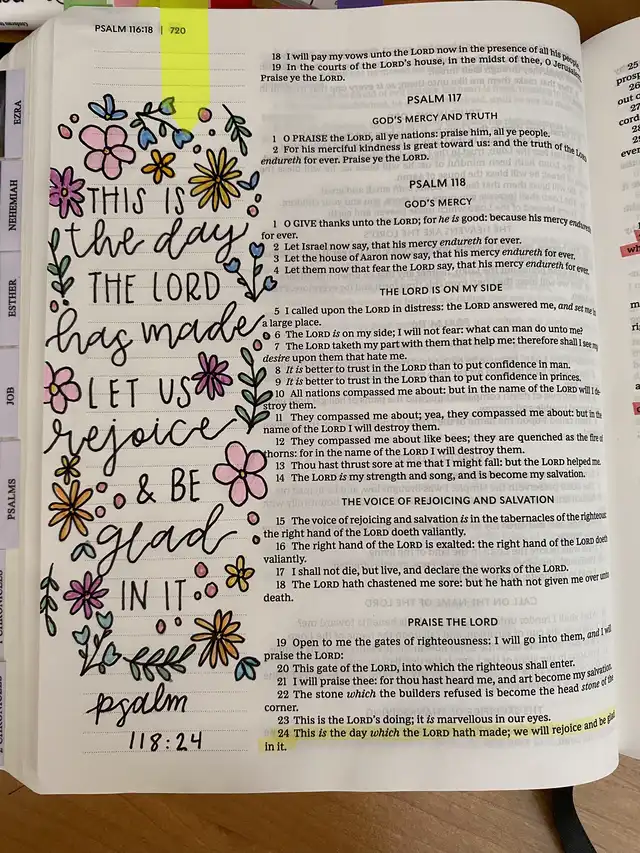 PSALM 116:18 | 720
EZRA
NEHEMIAH
ESTHER
JOB
PSALMS
THIS IS
the day
THE LORD
has made
LET US
rejoice
& BE
glad
IN IT
psalm
118:24
18 I will pay my vows unto the LORD now in the presence of all his people,
19 In the courts of the LORD's house, in the midst of thee, O Jerusalem.
Praise ye the LORD.
PSALM 117
GOD'S MERCY AND TRUTH
1 O PRAISE the LORD, all ye nations: praise him, all ye people.
2 For his merciful kindness is great toward us: and the truth of the LORD
endureth for ever. Praise ye the LORD.
PSALM 118
GOD'S MERCY
1 O GIVE thanks unto the LORD; for he is good: because his mercy endureth
for ever.
2 Let Israel now say, that his mercy endureth for ever.
3 Let the house of Aaron now say, that his mercy endureth for ever.
4 Let them now that fear the LORD say, that his mercy endureth for ever.
THE LORD IS ON MY SIDE
5 I called upon the LORD in distress: the LORD answered me, and set me in
a large place.
6 The LORD is on my side; I will not fear: what can man do unto me?
7 The LORD taketh my part with them that help me: therefore shall I see my
desire upon them that hate me.
8 It is better to trust in the LORD than to put confidence in man.
9 It is better to trust in the LORD than to put confidence in princes.
10 All nations compassed me about: but in the name of the LORD will I de-
stroy them.
11 They compassed me about; yea, they compassed me about: but in the
name of the LORD I will destroy them.
12 They compassed me about like bees; they are quenched as the fire of
thorns: for in the name of the LORD I will destroy them.
13 Thou hast thrust sore at me that I might fall: but the LORD helped me.
14 The LORD is my strength and song, and is become my salvation.
THE VOICE OF REJOICING AND SALVATION
15 The voice of rejoicing and salvation is in the tabernacles of the righteous:
the right hand of the LORD doeth valiantly.
16 The right hand of the LORD is exalted: the right hand of the LORD doeth
valiantly.
17 I shall not die, but live, and declare the works of the LORD.
18 The LORD hath chastened me sore: but he hath not given me over unto
death.
PRAISE THE LORD
19 Open to me the gates of righteousness: I will go into them, and I will
praise the LORD:
20 This gate of the LORD, into which the righteous shall enter.
21 I will praise thee: for thou hast heard me, and art become my salvation.
22 The stone which the builders refused is become the head stone of the
corner.
23 This is the LORD's doing; it is marvellous in our eyes.
24 This is the day which the LORD hath made; we will rejoice and be glad
in it.